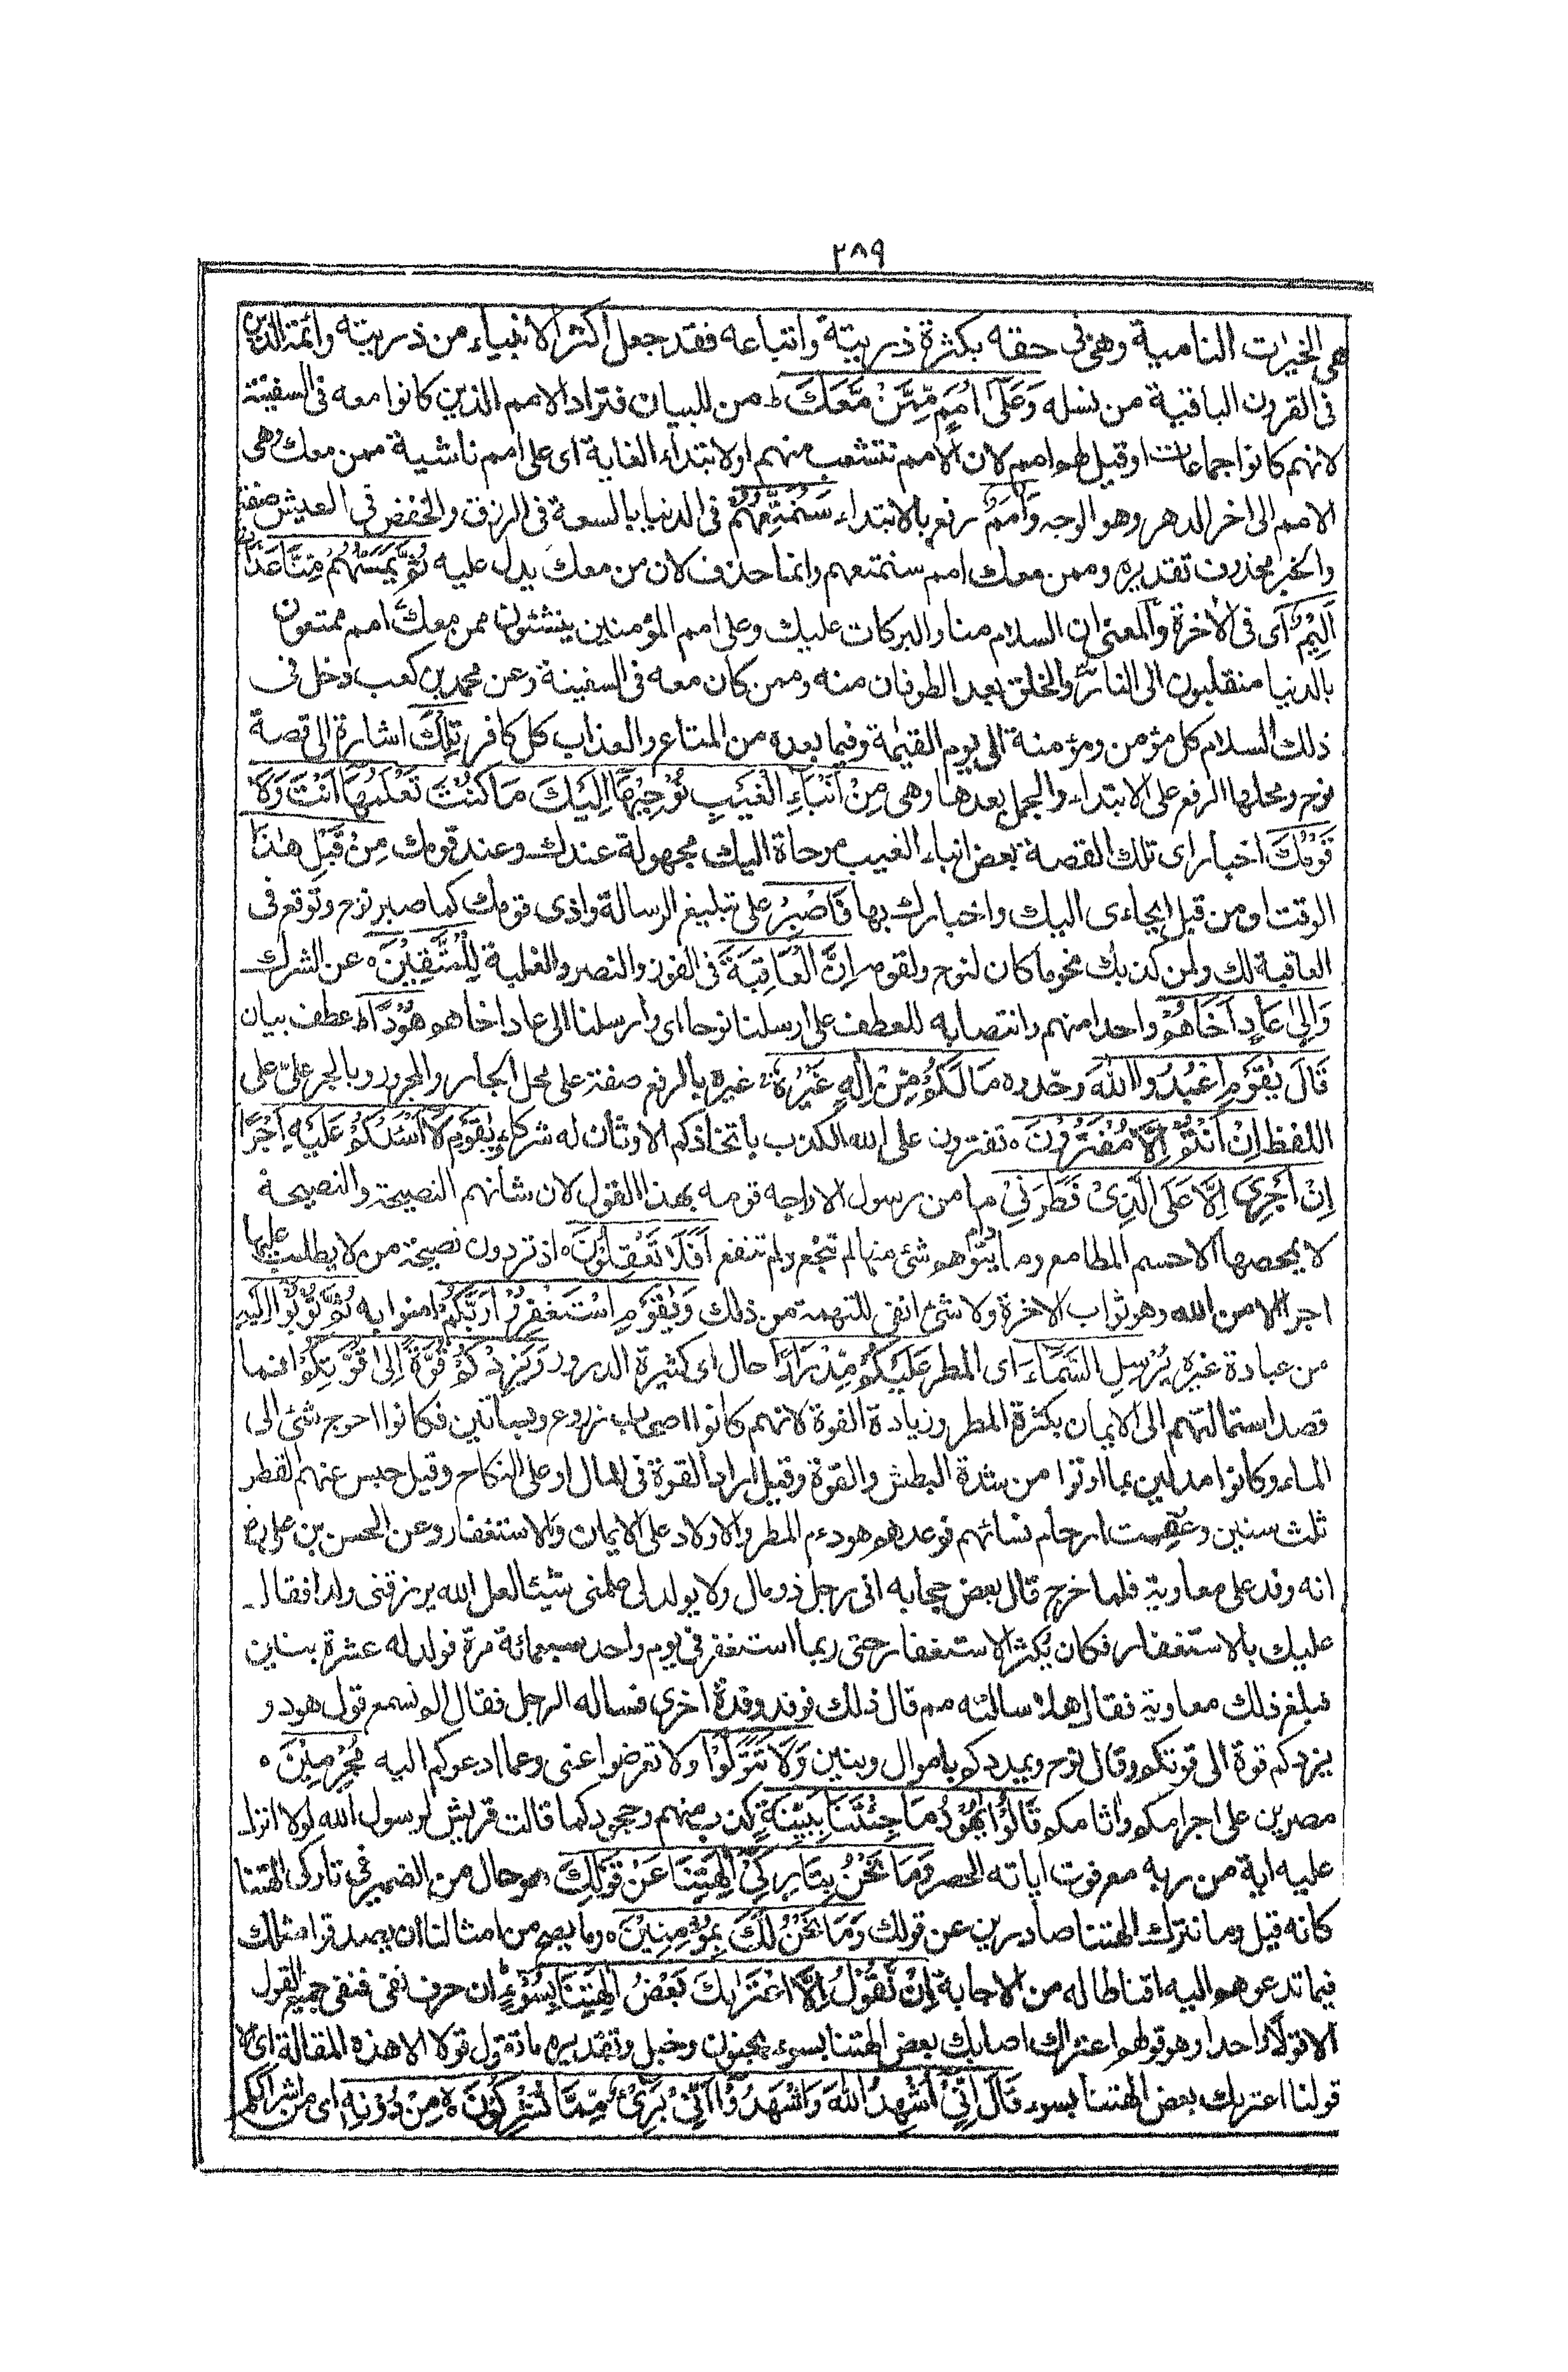 ٢٨٩
هى الخيرات النامية وهى فى حقه بكثرة ذريته واتباعه فقد جعل اكثر الانبياء من ذريته وائمة الدين
فى القرون الباقية من نسله وَعَلٰٓى اُمَمٍ مِّمَّنْ مَّعَكَ ط من للبيان فتراد الامم الذين كانوا معه فى السفينة
لانهم كانوا جماعات او قيل لهم امم لان الامم تتشعب منهم او لابتداء الغاية اى على امم ناشية ممن معك وهى
الامم الى اخر الدهر وهو الوجه وَاُمَمٌ رفع بالابتداء سَنُمَتِّعُهُمْ فى الدنيا بالسعة فى الرزق والخفض فى العيش صفة
والخبر محذوف تقديره وممن معك امم سنمتعهم وانما حذف لان من معك يدل عليه ثُمَّ يَمَسُّهُمْ مِّنَّا عَذَابٌ
اَلِيْمٌ اى فى الاخرة والمعنى ان السلام منا والبركات عليك وعلى امم المؤمنين ينشئون ممن معك امم ممتعون
بالدنيا منقلبون الى النار والخلق بعد الطوفان منه وممن كان معه فى السفينة وعن محمد بن كعب دخل فى
ذلك السلام كل مؤمن ومؤمنة الى يوم القيمة وفيما بعده من المتاع والعذاب كل كافر تِلْكَ اشارة الى قصة
نوح ومحلها الرفع على الابتداء والجمل بعدها وهى مِنْ اَنْۢبَآءِ الْغَيْبِ نُوْحِيْهَآ اِلَيْكَ مَا كُنْتَ تَعْلَمُهَآ اَنْتَ وَلَا
قَوْمُكَ اخبار اى تلك القصة بعض انباء الغيب موحاة اليك مجهولة عندك وعند قومك مِنْ قَبْلِ هٰذَا
الوقت او من قبل ايحاءى اليك واخبارك بها فَاصْبِرْ على تبليغ الرسالة واذى قومك كما صبر نوح وتوقع فى
العاقبة لك ولمن كذبك نحو ما كان لنوح ولقومه اِنَّ الْعَاقِبَةَ فى الفوز والنصر والغلبة لِلْمُتَّقِيْنَ ه عن الشرك
وَاِلٰى عَادٍ اَخَاهُمْ واحدا منهم وانتصابه للعطف على ارسلنا نوحا اى وارسلنا الى عاد اخاهم هُوْدًا ط عطف بيان
قَالَ يٰقَوْمِ اعْبُدُوا اللهَ وحدوه مَا لَكُمْ مِّنْ اِلٰهٍ غَيْرُهٗ غيره بالرفع صفة على محل الجار والمجرور وبالجر على على
اللفظ اِنْ اَنْتُمْ اِلَّا مُفْتَرُوْنَ ه تفترون على الله الكذب باتخاذكم الاوثان له شركاء يٰقَوْمِ لَآ اَسْئَلُكُمْ عَلَيْهِ اَجْرًا
اِنْ اَجْرِىَ اِلَّا عَلَى الَّذِىْ فَطَرَنِىْ ما من رسول الا واجه قومه بهذا القول لان شانهم النصيحة والنصيحة
لا يمحصها الا حسم المطامع وما دام يتوهم شئ منها لم تنجع ولم تنفع اَفَلَا تَعْقِلُوْنَ ه اذ تردون نصيحة من لا يطلب عليها
اجرا الا من الله وهو ثواب الاخرة ولا شئ انفى للتهمة من ذلك وَيٰقَوْمِ اسْتَغْفِرُوْا رَبَّكُمْ امنوا به ثُمَّ تُوْبُوْٓا اِلَيْهِ
من عبادة غيره يُرْسِلِ السَّمَآءَ اى المطر عَلَيْكُمْ مِّدْرَارًا حال اى كثيرة الدرور وَّيَزِدْكُمْ قُوَّةً اِلٰى قُوَّتِكُمْ انما
قصد استمالتهم الى الايمان بكثرة المطر وزيادة القوة لانهم كانوا اصحاب زروع وبساتين فكانوا احوج شئ الى
الماء وكانوا مدلين بما اوتوا من شدة البطش والقوة وقيل اراد القوة فى المال او على النكاح وقيل حبس عنهم القطر
ثلث سنين وعقمت ارحام نسائهم فوعدهم هود ءم المطر والاولاد على الايمان والاستغفار وعن الحسن بن على رض
انه وفد على معاوية فلما خرج قال بعض حجابه انى رجل ذو مال ولا يولد لى علمنى شيئا لعل الله يرزقنى ولدا فقال
عليك بالاستغفار فكان يكثر الاستغفار حتى ربما استغفر فى يوم واحد سبعمائة مرة فولد له عشرة بنين
فبلغ ذلك معاوية فقال هلا سالته مم قال ذلك فوفد وفدة اخرى فساله الرجل فقال الم تسمع قول هود و
يزدكم قوة الى قوتكم وقال نوح ويمددكم باموال وبنين وَلَا تَتَوَلَّوْا ولا تعرضوا عنى وعما ادعوكم اليه مُجْرِمِيْنَ ه
مصرين على اجرامكم واثامكم قَالُوْا يٰهُوْدُ مَا جِئْتَنَا بِبَيِّنَةٍ كذب منهم وجحود كما قالت قريش لرسول الله لولا انزل
عليه اية من ربه مع فوت اياته الحصر وَمَا نَحْنُ بِتَارِكِىْٓ اٰلِهَتِنَا عَنْ قَوْلِكَ هو حال من الضمير فى تاركى الهتنا
كانه قيل وما نترك الهتنا صادرين عن قولك وَمَا نَحْنُ لَكَ بِمُؤْمِنِيْنَ ه وما يصح من امثالنا ان يصدقوا مثلك
فيما تدعوهم اليه اقناطا له من الاجابة اِنْ نَّقُوْلُ اِلَّا اعْتَرٰىكَ بَعْضُ اٰلِهَتِنَا بِسُوْٓءٍ ان حرف نفى فنفى جميع القول
الا قولا واحدا وهو قولهم اعتراك اصابك بعض الهتنا بسوء بجنون وخبل وتقديره ما نقول قولا الا هذه المقالة اى الا
قولنا اعتريك بعض الهتنا بسوء قَالَ اِنِّىْٓ اُشْهِدُ اللهَ وَاشْهَدُوْٓا اَنِّىْ بَرِىْٓءٌ مِّمَّا تُشْرِكُوْنَ ه مِنْ دُوْنِهٖ اى من اشراككم